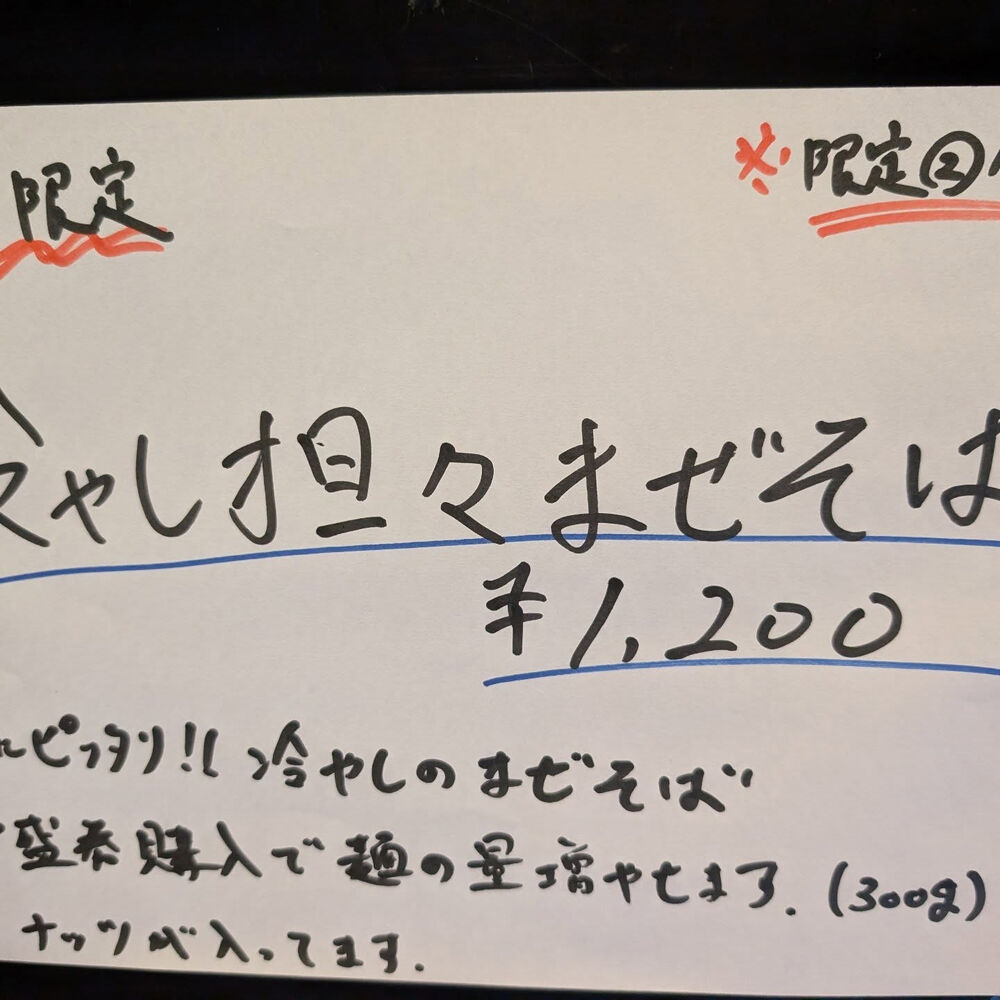 限定
※限定②
やし担々まぜそば
¥1,200
ピッタリ!! 冷やしのまぜそば
盛券購入で麺の量増やせます.(300g)
ナッツが入ってます.